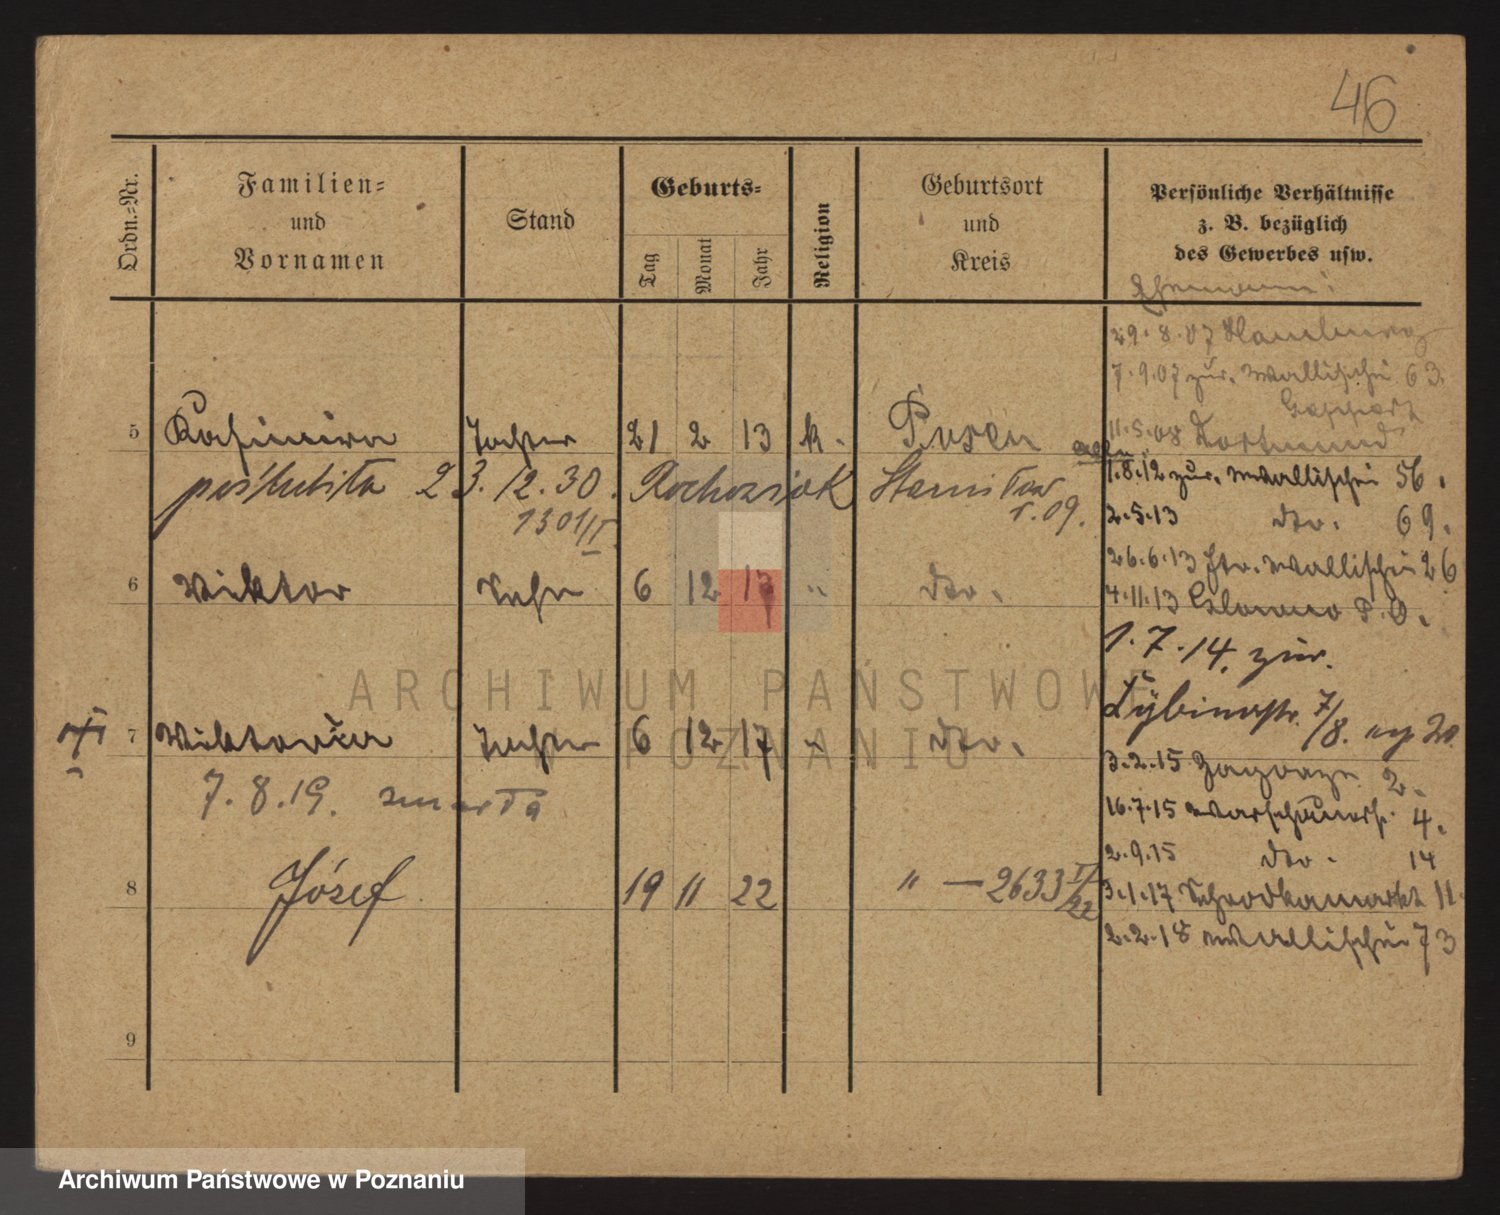 46
Ordn.-Nr.
Familien-
und
Vornamen
Stand
Geburts-
Tag
Monat
Jahr
Religion
Geburtsort
und
Kreis
Persönliche Verhältnisse
z. B. bezüglich
des Gewerbes usw.
Ehemann:
29.8.07 Hamburg
7.9.07 zur. Wallischei 63.
11.5.08 Dortmund
5 Kasimira Tochter 21 2 13 k. Posen
poślubiła 23.12.30. Rochowiak Stanisław
1301/II 1.09.
1.8.12 zur. Wallischei 56.
2.5.13 dto. 69.
26.6.13 Wallischei 26
6 Viktor Sohn 6 12 17 " dto.
4.11.13 P.O.
1.7.14. zur.
Cybinastr. 7/8.
7 Viktoria Tochter 6 12 17 " dto.
3.2.15 Zagorze 2.
7.8.19. zmarła
16.7.15 Warschauerstr. 4.
2.9.15 dto. 14
8 Józef 19 11 22 " — 2633 II/22
3.1.17 Schrodkamarkt 11.
2.2.18 Wallischei 73
9
ARCHIWUM PAŃSTWOWE
W POZNANIU
Archiwum Państwowe w Poznaniu